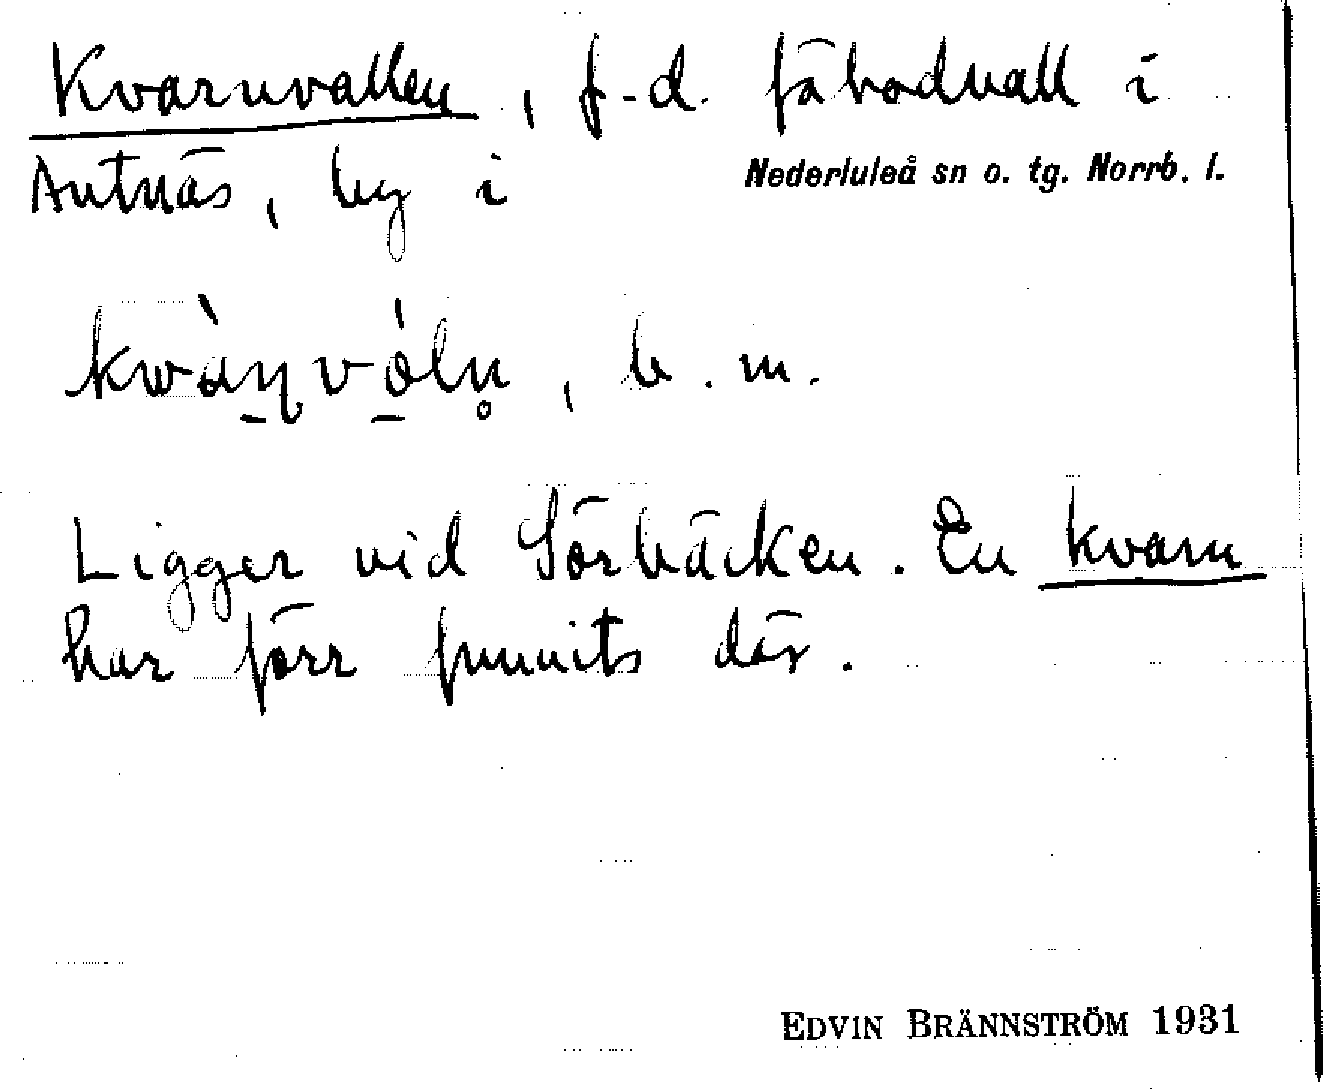 Kvarnvallen, f.d. fäbodvall i
Antnäs, by i Nederluleå sn o. tg. Norrb. l.
kwàṉvó̱ln̥, b. m.
Ligger vid Sörbäcken. En kvarn
har förr funnits där.
EDVIN BRÄNNSTRÖM 1931